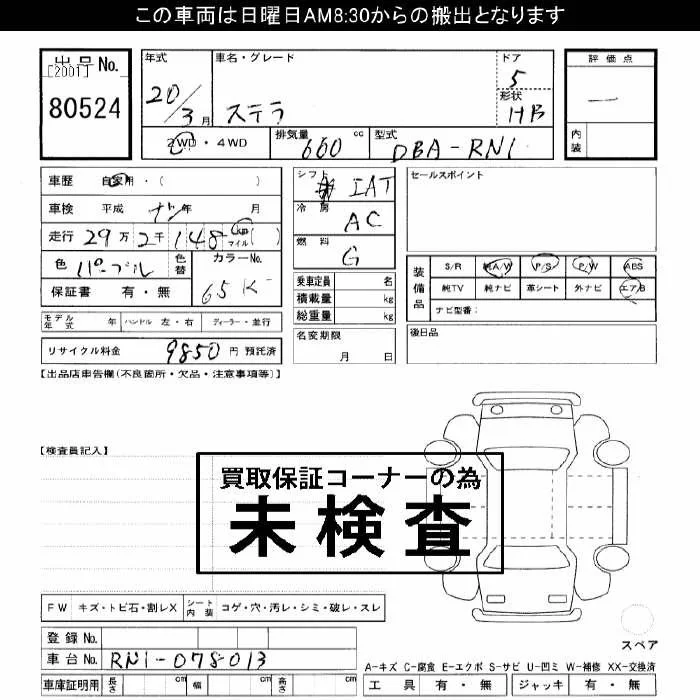 この車両は日曜日AM8:30からの搬出となります
出品No.
[2001]
80524
年式
20/3月
車名・グレード
ステラ
ドア
5
形状
HB
評価点
一
内装
2WD・4WD
排気量
660 cc
型式
DBA-RN1
車歴 自家用・( )
車検 平成 ナシ 年 月
走行 29万2千148 km マイル ( )
色 パープル
色替
カラーNo.
65K
保証書 有・無
シフト
IAT
冷房
AC
燃料
G
乗車定員 名
積載量 kg
総重量 kg
セールスポイント
装備品
S/R 純A/W P/S P/W ABS
純TV 純ナビ 革シート 外ナビ エアB
ナビ型番:
モデル年式 年 ハンドル 左・右 ディーラー・並行
名変期限
月 日
後日品
リサイクル料金 9850 円 預託済
【出品店申告欄(不良箇所・欠品・注意事項等)】
【検査員記入】
買取保証コーナーの為
未検査
FW キズ・トビ石・割レX シート内装 コゲ・穴・汚レ・シミ・破レ・スレ
登録No.
車台No. RN1-078013
車庫証明用 長さ cm 幅 cm 高さ cm
スペア
A-キズ C-腐食 E-エクボ S-サビ U-凹ミ W-補修 XX-交換済
工具 有・無 ジャッキ 有・無